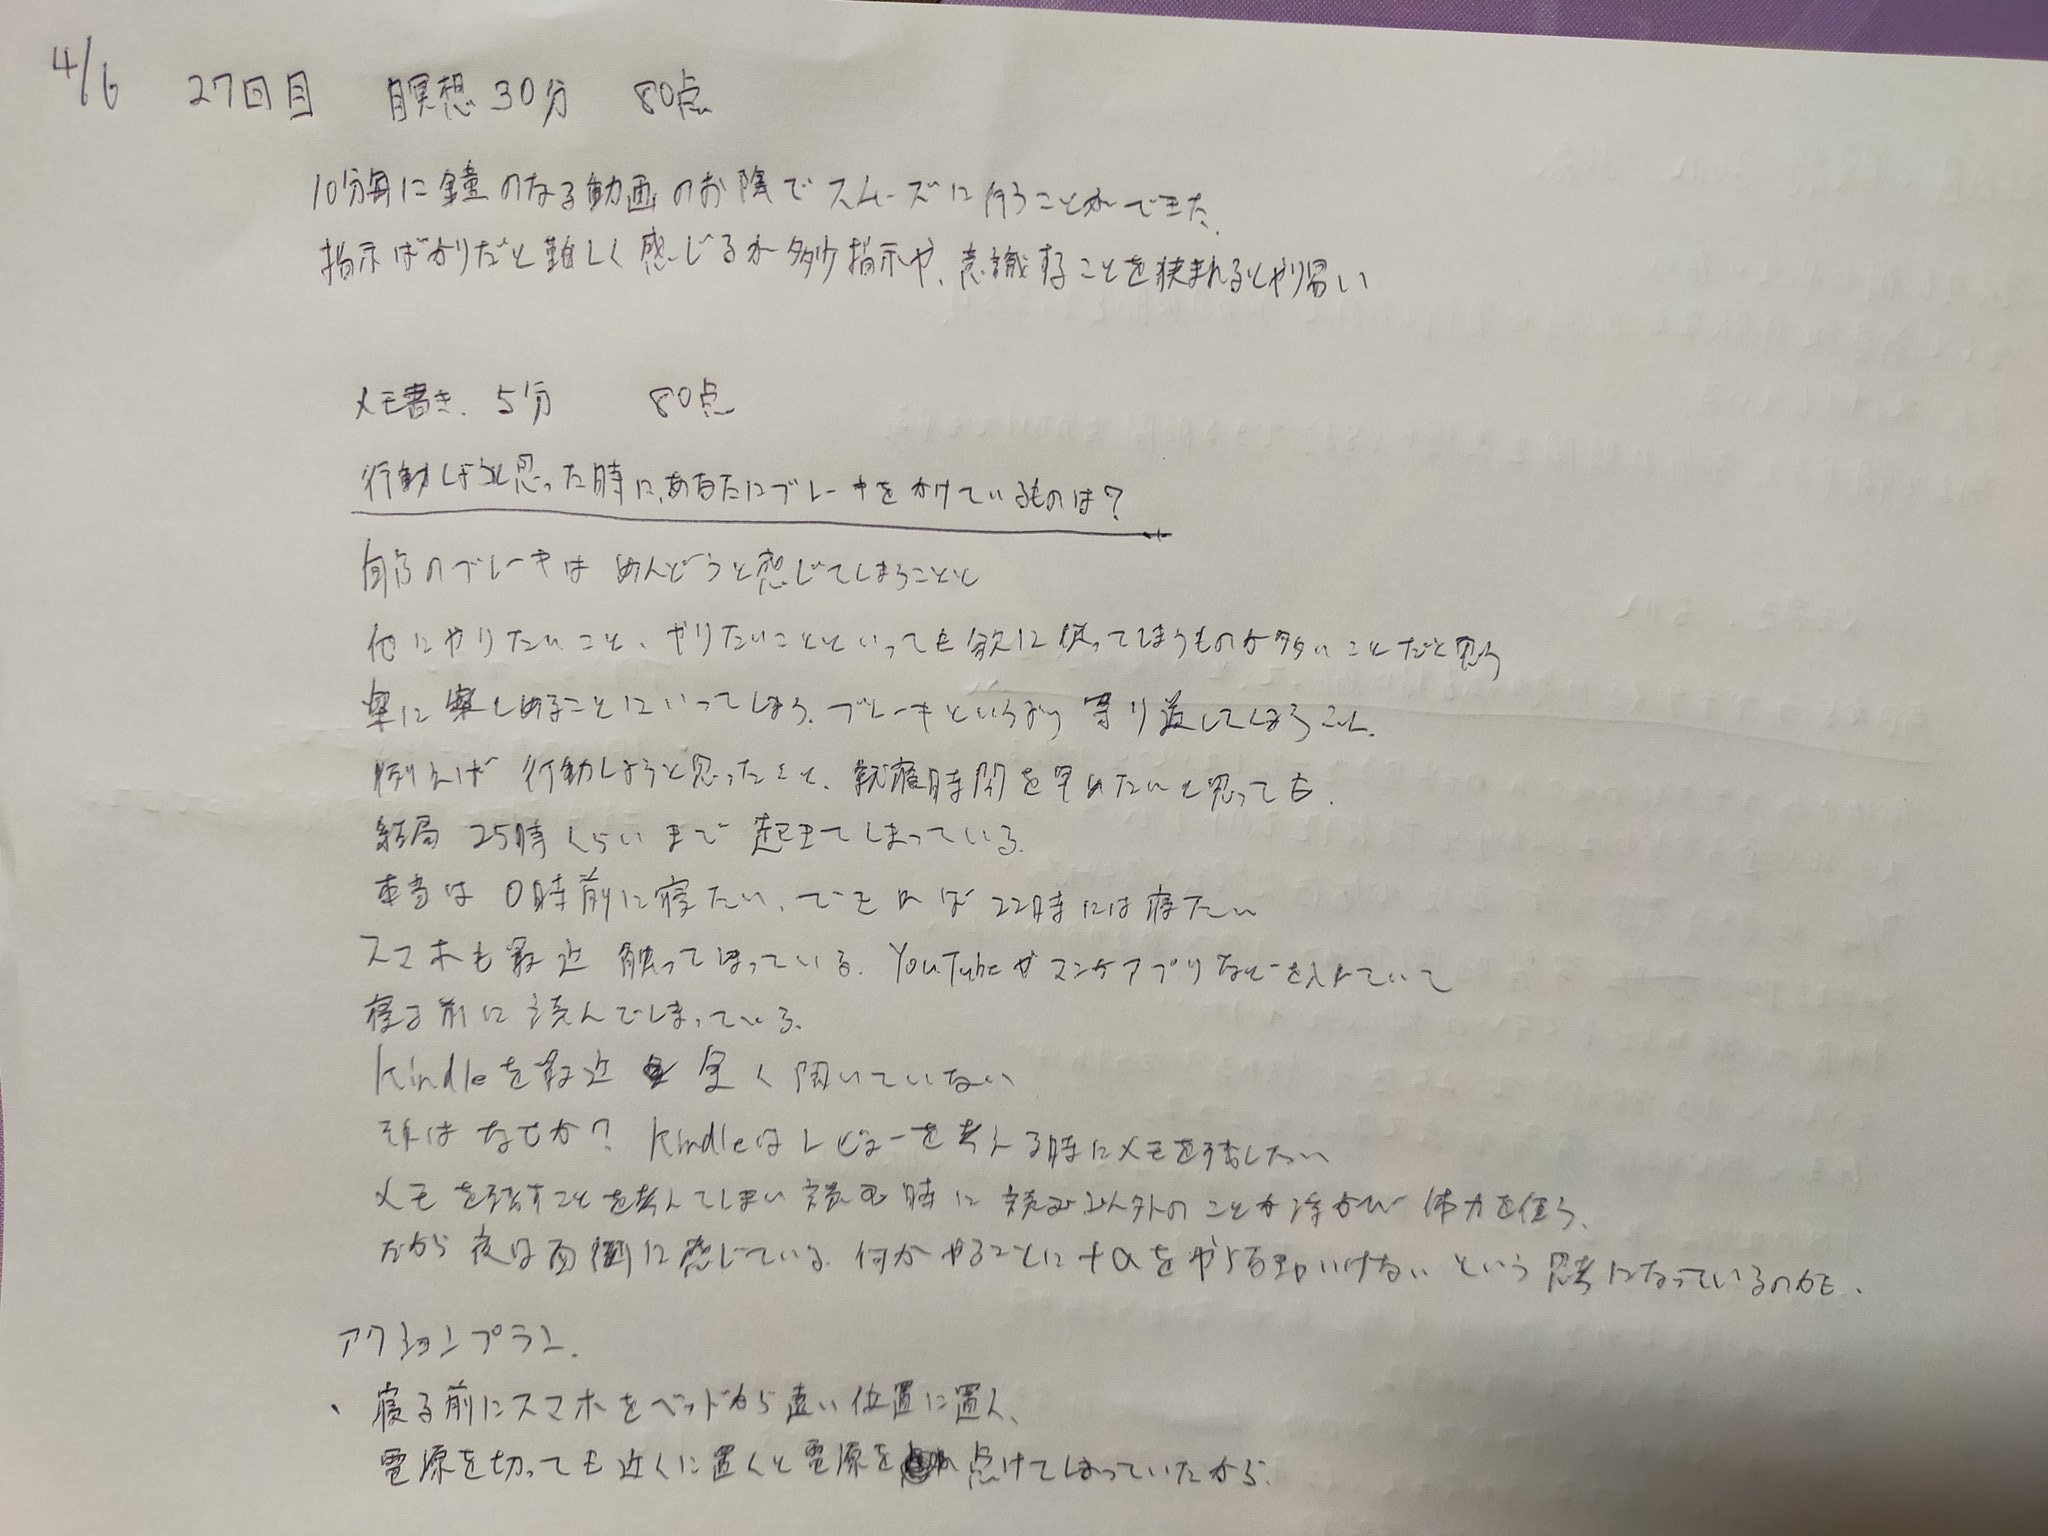 4/6 27回目 瞑想30分 80点
10分毎に鐘のなる動画のお陰でスムーズに行うことができた。
指示ばかりだと難しく感じるが多少指示や、意識することを狭まれるとやり易い
メモ書き、5分 80点
行動しようと思った時に、あなたにブレーキをかけているものは?
自分のブレーキは めんどうと感じてしまうことと
他にやりたいこと、やりたいことといっても欲に従ってしまうものが多いことだと思う
楽に楽しめることにいってしまう。ブレーキというより寄り道してしまうこと。
例えば 行動しようと思ったこと、就寝時間を早めたいと思っても、
結局 25時くらいまで起きてしまっている。
本当は 0時前に寝たい、できれば 22時には寝たい
スマホも最近 触ってしまっている。YouTubeやマンガアプリなどを入れていて
寝る前に読んでしまっている。
Kindleを最近 全く開いていない
それはなぜか? Kindleはレビューを考える時にメモを残したい
メモを残すことを考えてしまい 読む時に 読む以外のことが浮かび 体力を使う、
だから夜は面倒に感じている。何かやることに+αをやらねばいけない という思考になっているのかも、
アクションプラン、
・寝る前にスマホをベッドから遠い位置に置く、
電源を切っても近くに置くと電源を 点けてしまっていたから。